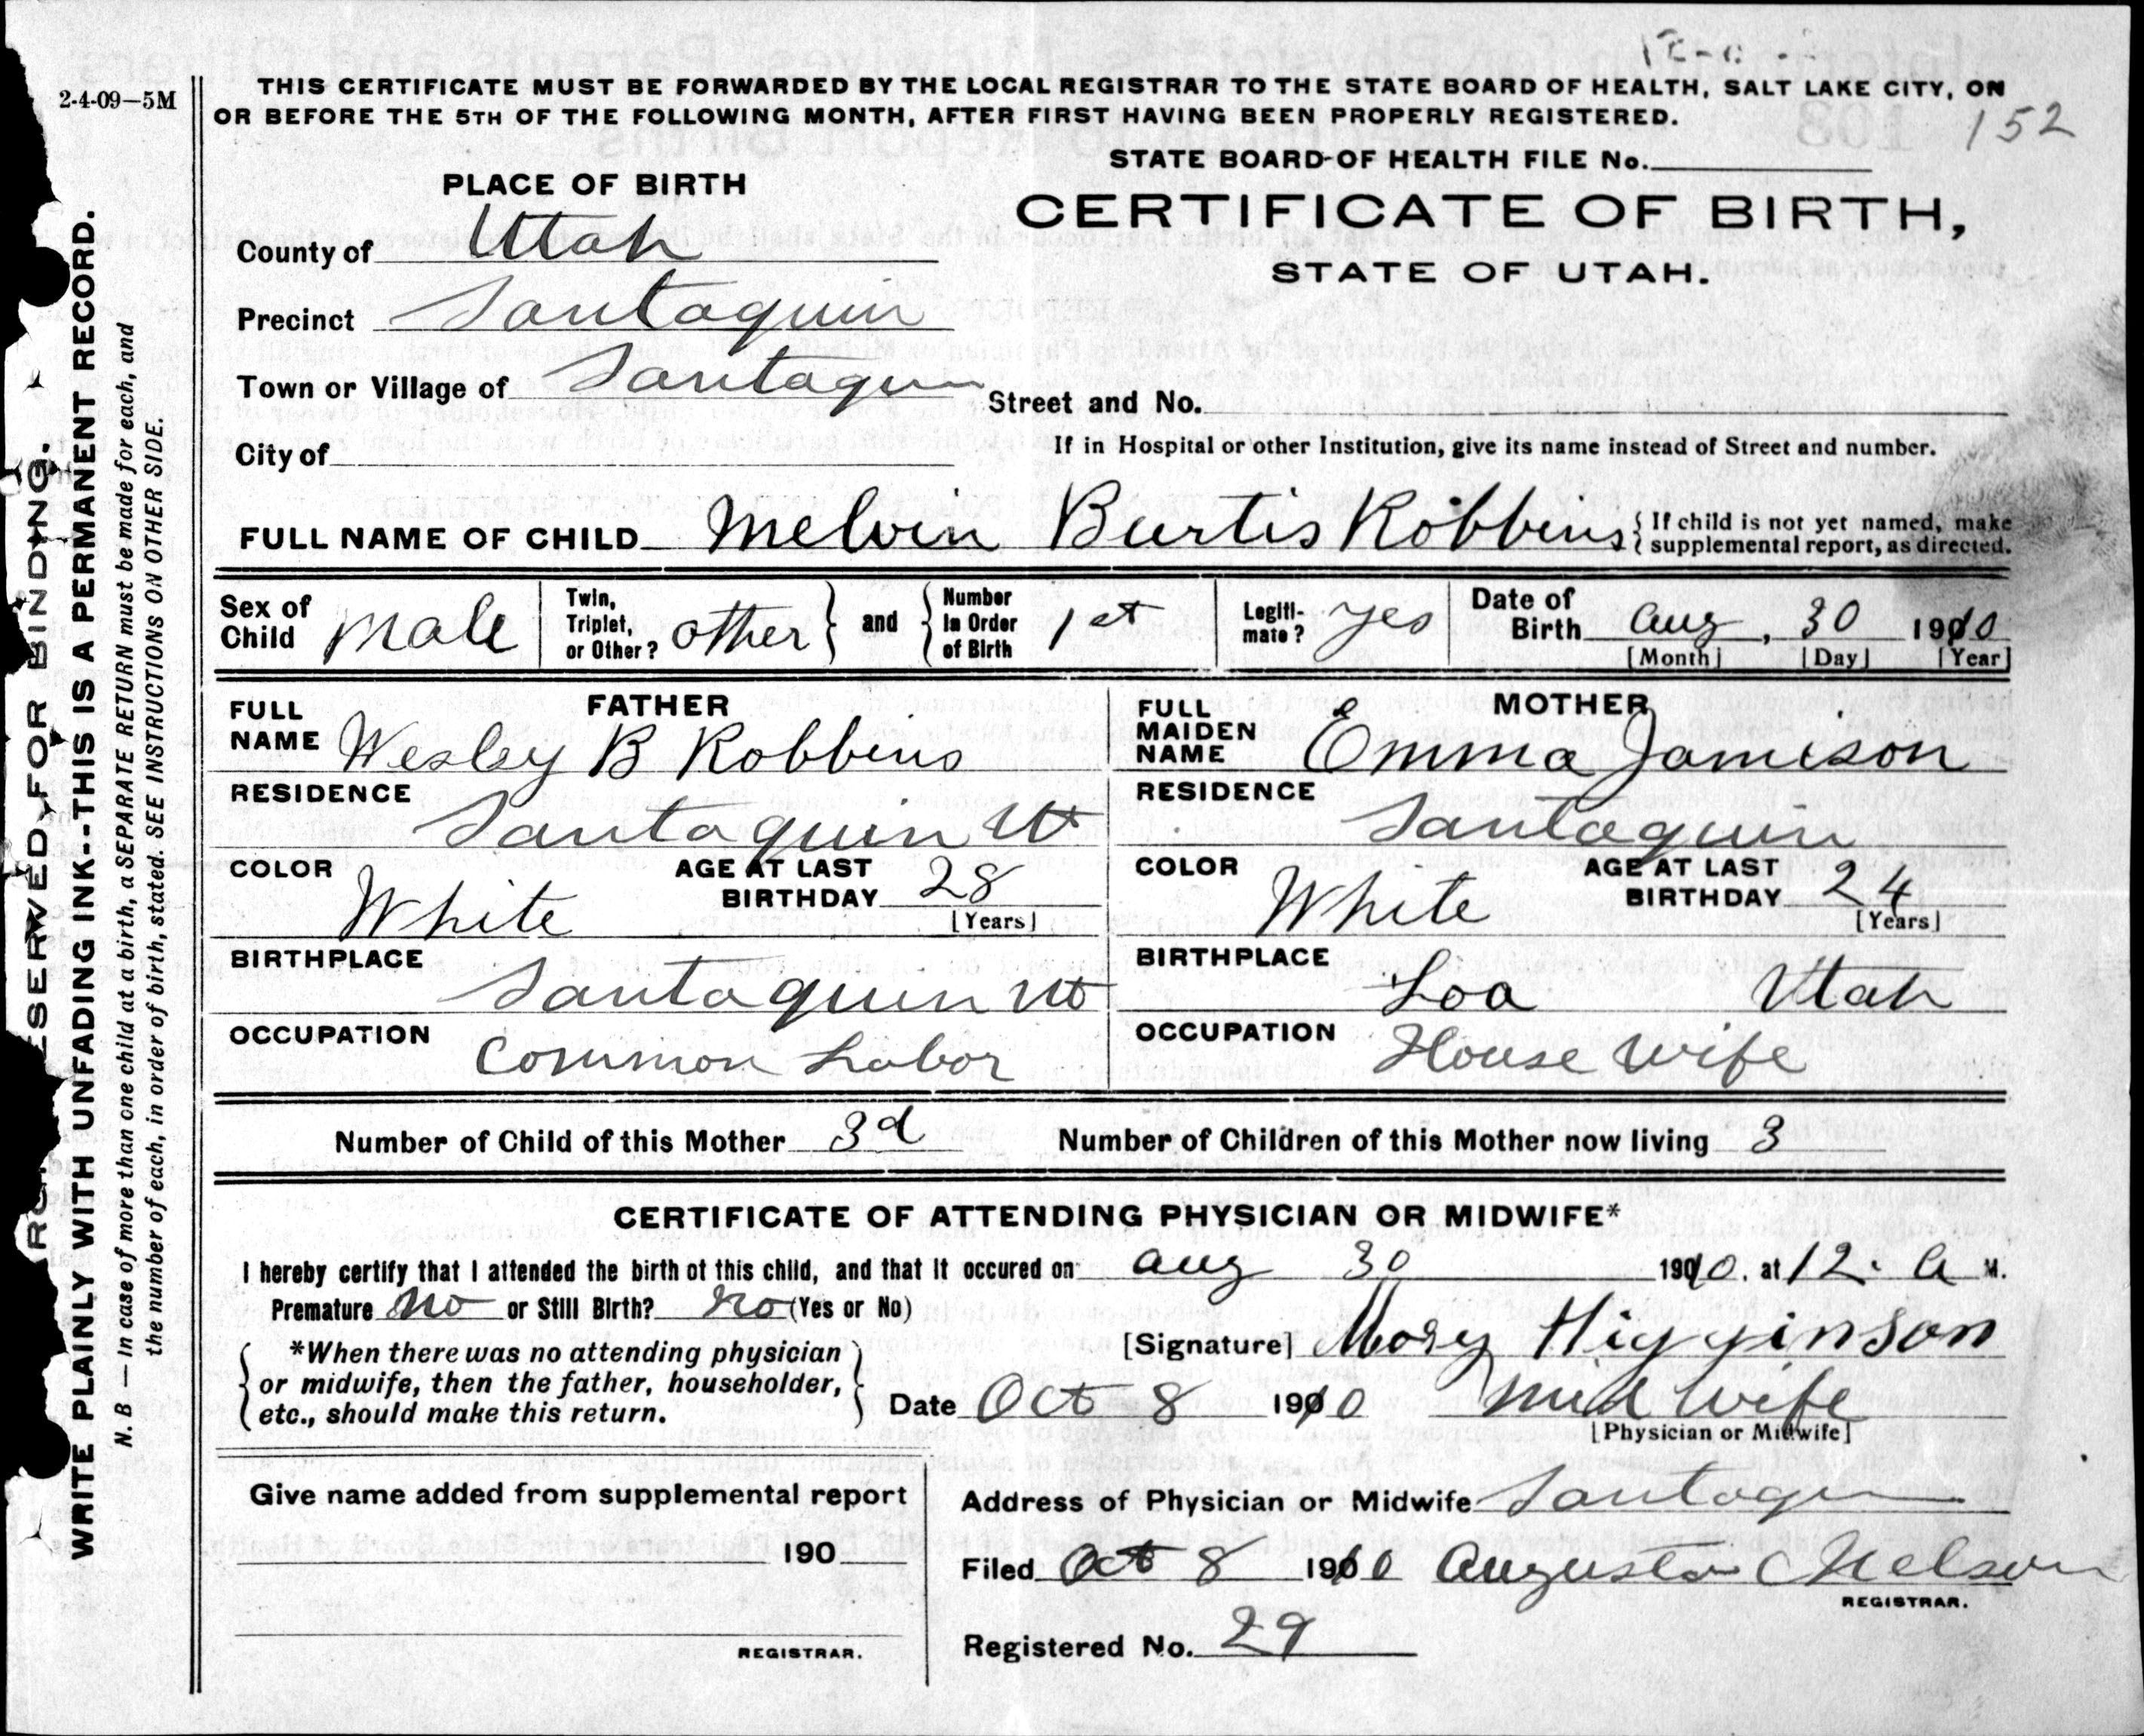 2-4-09—5M
THIS CERTIFICATE MUST BE FORWARDED BY THE LOCAL REGISTRAR TO THE STATE BOARD OF HEALTH, SALT LAKE CITY, ON
OR BEFORE THE 5TH OF THE FOLLOWING MONTH, AFTER FIRST HAVING BEEN PROPERLY REGISTERED.
152
STATE BOARD OF HEALTH FILE No.
CERTIFICATE OF BIRTH,
STATE OF UTAH.
PLACE OF BIRTH
County of Utah
Precinct Santaquin
Town or Village of Santaquin
Street and No.
City of
If in Hospital or other Institution, give its name instead of Street and number.
FULL NAME OF CHILD Melvin Burtis Robbins { If child is not yet named, make
supplemental report, as directed.
Sex of Child Male
Twin, Triplet, or Other? other } and { Number In Order of Birth 1st
Legiti-mate? yes
Date of Birth Aug, 30 1910
[Month] [Day] [Year]
FATHER
FULL NAME Wesley B Robbins
RESIDENCE
Santaquin Ut
COLOR White AGE AT LAST BIRTHDAY 28
[Years]
BIRTHPLACE
Santaquin Ut
OCCUPATION
Common Labor
MOTHER
FULL MAIDEN NAME Emma Jamison
RESIDENCE
Santaquin
COLOR White AGE AT LAST BIRTHDAY 24
[Years]
BIRTHPLACE
Loa Utah
OCCUPATION
House Wife
Number of Child of this Mother 3d Number of Children of this Mother now living 3
CERTIFICATE OF ATTENDING PHYSICIAN OR MIDWIFE*
I hereby certify that I attended the birth of this child, and that it occured on Aug 30 1910. at 12. A M.
Premature No or Still Birth? No (Yes or No)
*When there was no attending physician
or midwife, then the father, householder,
etc., should make this return.
[Signature] Mary Higginson
Date Oct 8 1910 Mid Wife
[Physician or Midwife]
Give name added from supplemental report
190
REGISTRAR.
Address of Physician or Midwife Santaquin
Filed Oct 8 1910 Augusta C Nelson
REGISTRAR.
Registered No. 29
RESERVED FOR BINDING.
WRITE PLAINLY WITH UNFADING INK--THIS IS A PERMANENT RECORD.
N. B — In case of more than one child at a birth, a SEPARATE RETURN must be made for each, and
the number of each, in order of birth, stated. SEE INSTRUCTIONS ON OTHER SIDE.